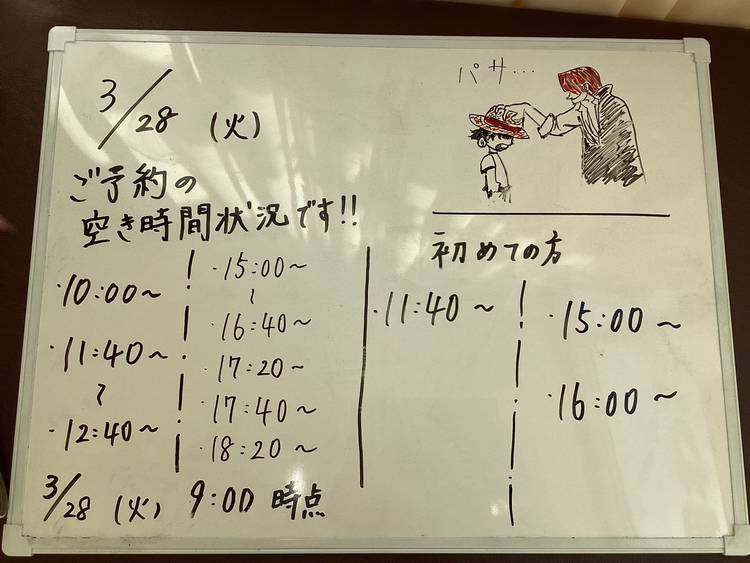 3/28 (火)
ご予約の
空き時間状況です!!
・10:00〜
・11:40〜
〜
・12:40〜
・15:00〜
〜
・16:40〜
・17:20〜
・17:40〜
・18:20〜
3/28 (火) 9:00 時点
パサ…
初めての方
・11:40〜
・15:00〜
・16:00〜